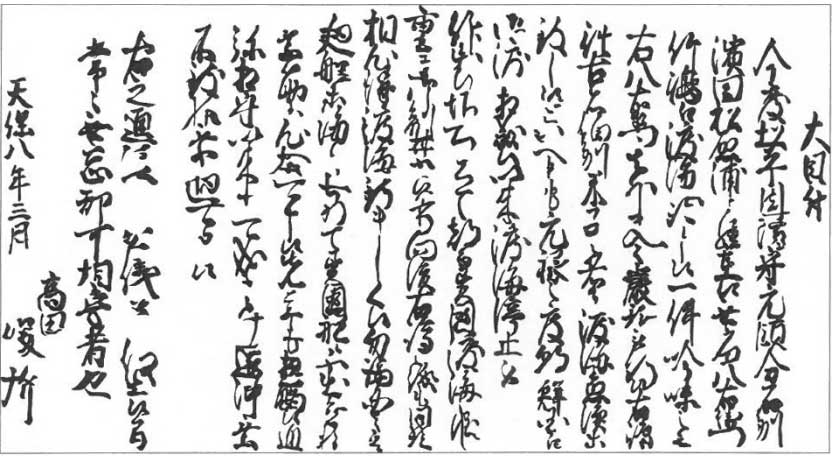 大目付
今度松平周防守元領分石州
濱田松原浦ニ罷在候無宿八右衛門
竹嶋江渡海いたし候一件吟味之上
右八右衛門其外夫々厳科被行候右嶋
往古は伯州米子もの共渡海魚漁等
致し候といへとも元禄之度朝鮮国江
御渡ニ相成候以来渡海停止被
仰出候場所ニ有之都而異国渡海之儀は
重キ御制禁ニ候條向後右嶋之儀も同様
相心得渡海致ましく候勿論国々之
廻船等海上おゐて異国船ニ不出合様
乗筋等心かけ可申旨先年も相触候通
弥相守以来は可成たけ遠沖乗
不致様乗廻り可申候
右之通従 公儀被 仰出候間
常々無忘却可相守者也
天保八年三月
高田
役所